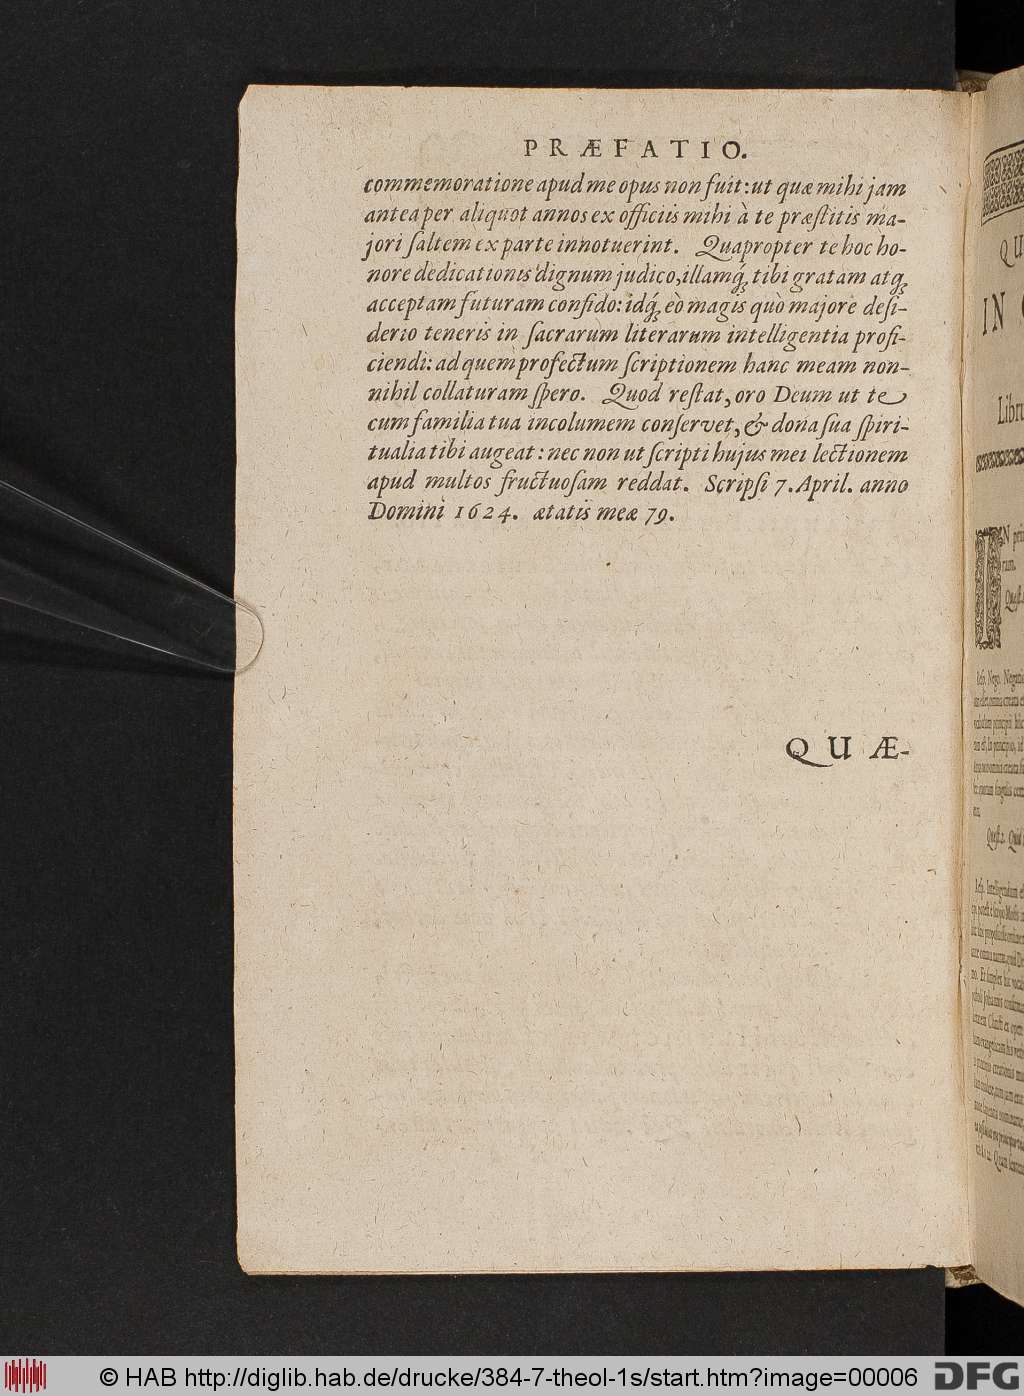 PRÆFATIO.
commemoratione apud me opus non fuit: ut quæ mihi jam
antea per aliquot annos ex officiis mihi à te præſtitis ma-
jori ſaltem ex parte innotuerint. Quapropter te hoc ho-
nore dedicationis dignum judico, illamq́; tibi gratam atq;
acceptam futuram confido: idq́; eò magis quò majore deſi-
derio teneris in ſacrarum literarum intelligentia profi-
ciendi: ad quem profectum ſcriptionem hanc meam non-
nihil collaturam ſpero. Quod reſtat, oro Deum ut te
cum familia tua incolumem conſervet, & dona ſua ſpiri-
tualia tibi augeat: nec non ut ſcripti hujus mei lectionem
apud multos fructuoſam reddat. Scripſi 7. April. anno
Domini 1624. ætatis meæ 79.
QUÆ-
QU
IN
Libru
IN
© HAB http://diglib.hab.de/drucke/384-7-theol-1s/start.htm?image=00006
DFG